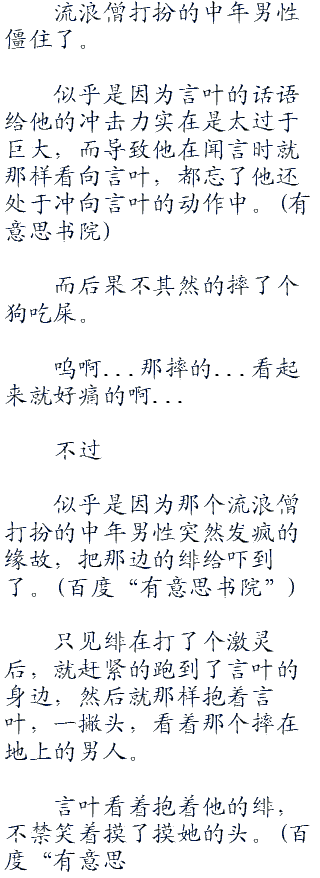 流浪僧打扮的中年男性
僵住了。
似乎是因为言叶的话语
给他的冲击力实在是太过于
巨大，而导致他在闻言时就
那样看向言叶，都忘了他还
处于冲向言叶的动作中。(有
意思书院)
而后果不其然的摔了个
狗吃屎。
呜啊...那摔的...看起
来就好痛的啊...
不过
似乎是因为那个流浪僧
打扮的中年男性突然发疯的
缘故，把那边的绯给吓到
了。(百度“有意思书院”)
只见绯在打了个激灵
后，就赶紧的跑到了言叶的
身边，然后就那样抱着言
叶，一撇头，看着那个摔在
地上的男人。
言叶看着抱着他的绯，
不禁笑着摸了摸她的头。(百
度“有意思